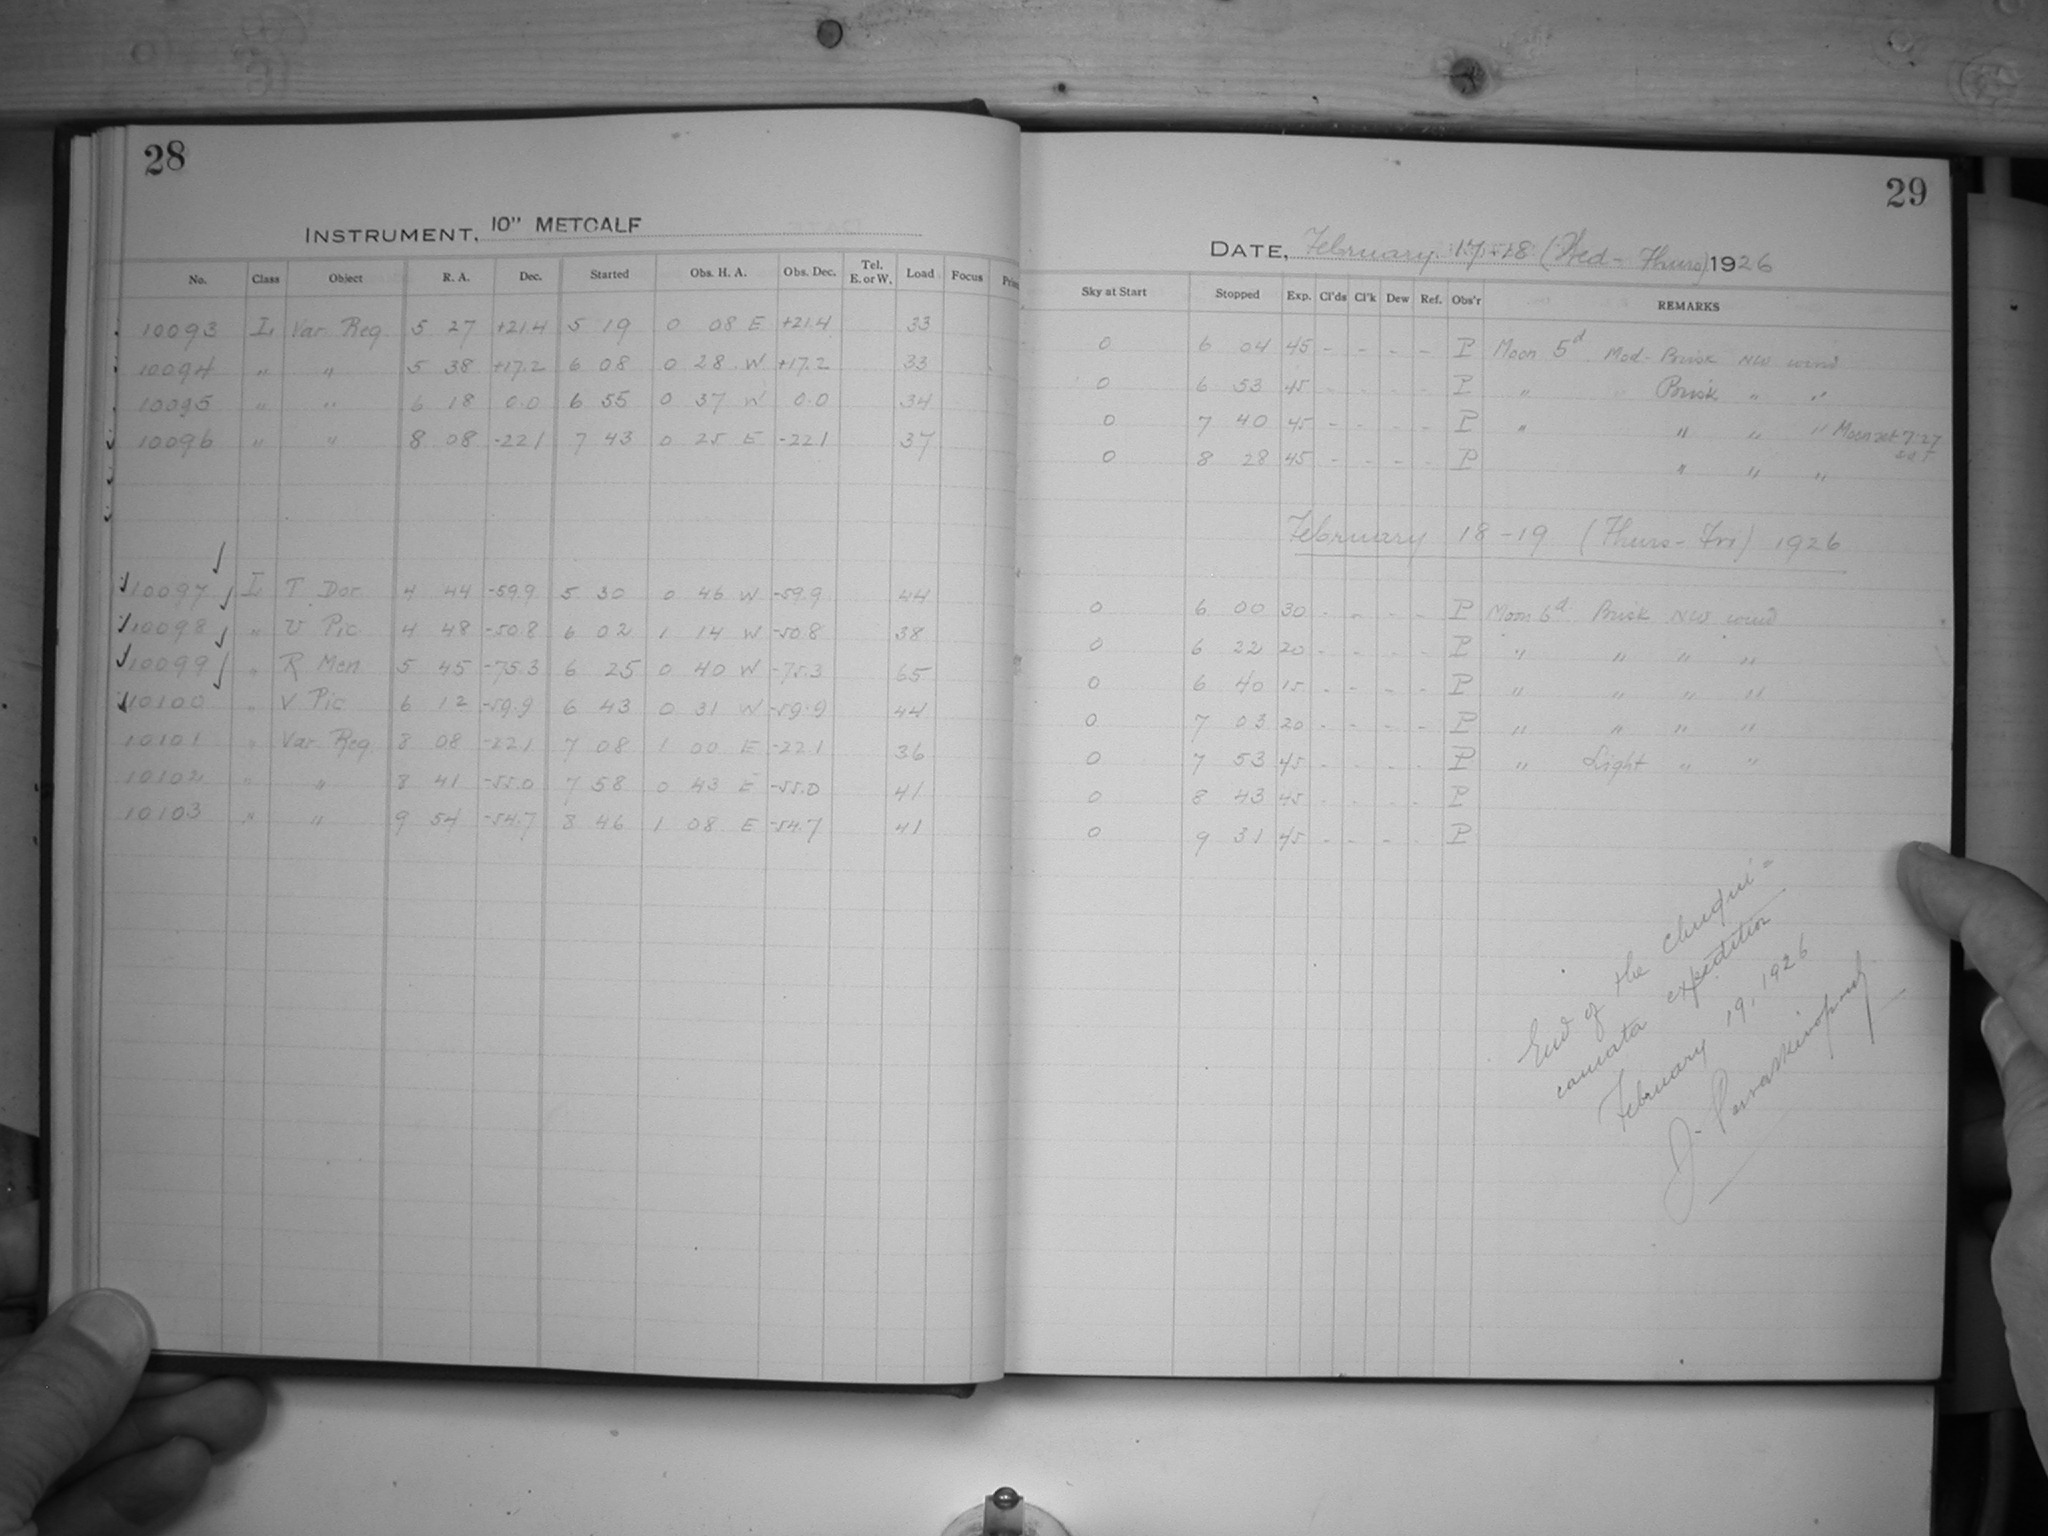 28
INSTRUMENT, 10" METCALF
No. Class Object R. A. Dec. Started Obs. H. A. Obs. Dec. Tel. E. or W. Load Focus
10093 I, Var Reg 5 27 +21.4 5 19 0 08 E +21.4 33
10094 " " 5 38 +17.2 6 08 0 28 W +17.2 33
10095 " " 6 18 0.0 6 55 0 37 W 0.0 34
10096 " " 8 08 -22.1 7 43 0 25 E -22.1 37
10097 I, T Dor 4 44 -59.9 5 30 0 46 W -59.9 44
10098 " U Pic 4 48 -50.8 6 02 1 14 W -50.8 38
10099 " R Men 5 45 -75.3 6 25 0 40 W -75.3 65
10100 " V Pic 6 12 -59.9 6 43 0 31 W -59.9 44
10101 " Var Reg. 8 08 -22.1 7 08 1 00 E -22.1 36
10102 " " 8 41 -55.0 7 58 0 43 E -55.0 41
10103 " " 9 54 -54.7 8 46 1 08 E -54.7 41
29
DATE, February 17-18 (Wed - Thurs) 1926
Sky at Start Stopped Exp. Cl'ds Cl'k Dew Ref. Obs'r REMARKS
0 6 04 45 - - - - P Moon 5d Mod - Brisk NW wind
0 6 53 45 - - - - P " Brisk " "
0 7 40 45 - - - - P " " " " Moon set 7:27
0 8 28 45 - - - - P " " "
February 18-19 (Thurs - Fri) 1926
0 6 00 30 - - - - P Moon 6d Brisk NW wind
0 6 22 20 - - - - P " " " "
0 6 40 15 - - - - P " " " "
0 7 03 20 - - - - P " " " "
0 7 53 45 - - - - P " Light " "
0 8 43 45 - - - - P
0 9 31 45 - - - - P
End of the Chuqui=
camata expedition
February 19, 1926
J. Paraskevopoulos